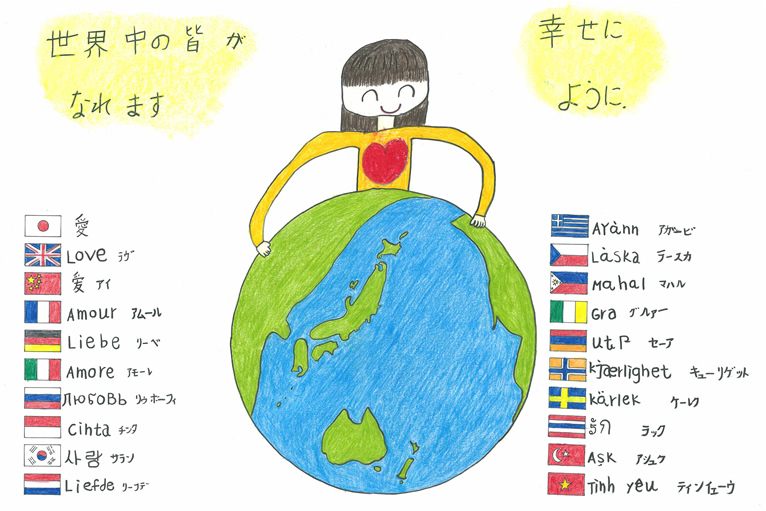 世界中の皆が 幸せに
なれます ように.
愛
Love ラヴ
愛 アイ
Amour アムール
Liebe リーベ
Amore アモーレ
Любовь
Cinta チンタ
사랑 サラン
Liefde リーフデ
Αγάπη アガーピ
Láska ラースカ
Mahal マハル
Gra グルァー
սեր セーア
kjærlighet キューリゲット
kärlek ケーレク
รัก ラック
Aşk アシュク
Tình yêu ティンイェーウ